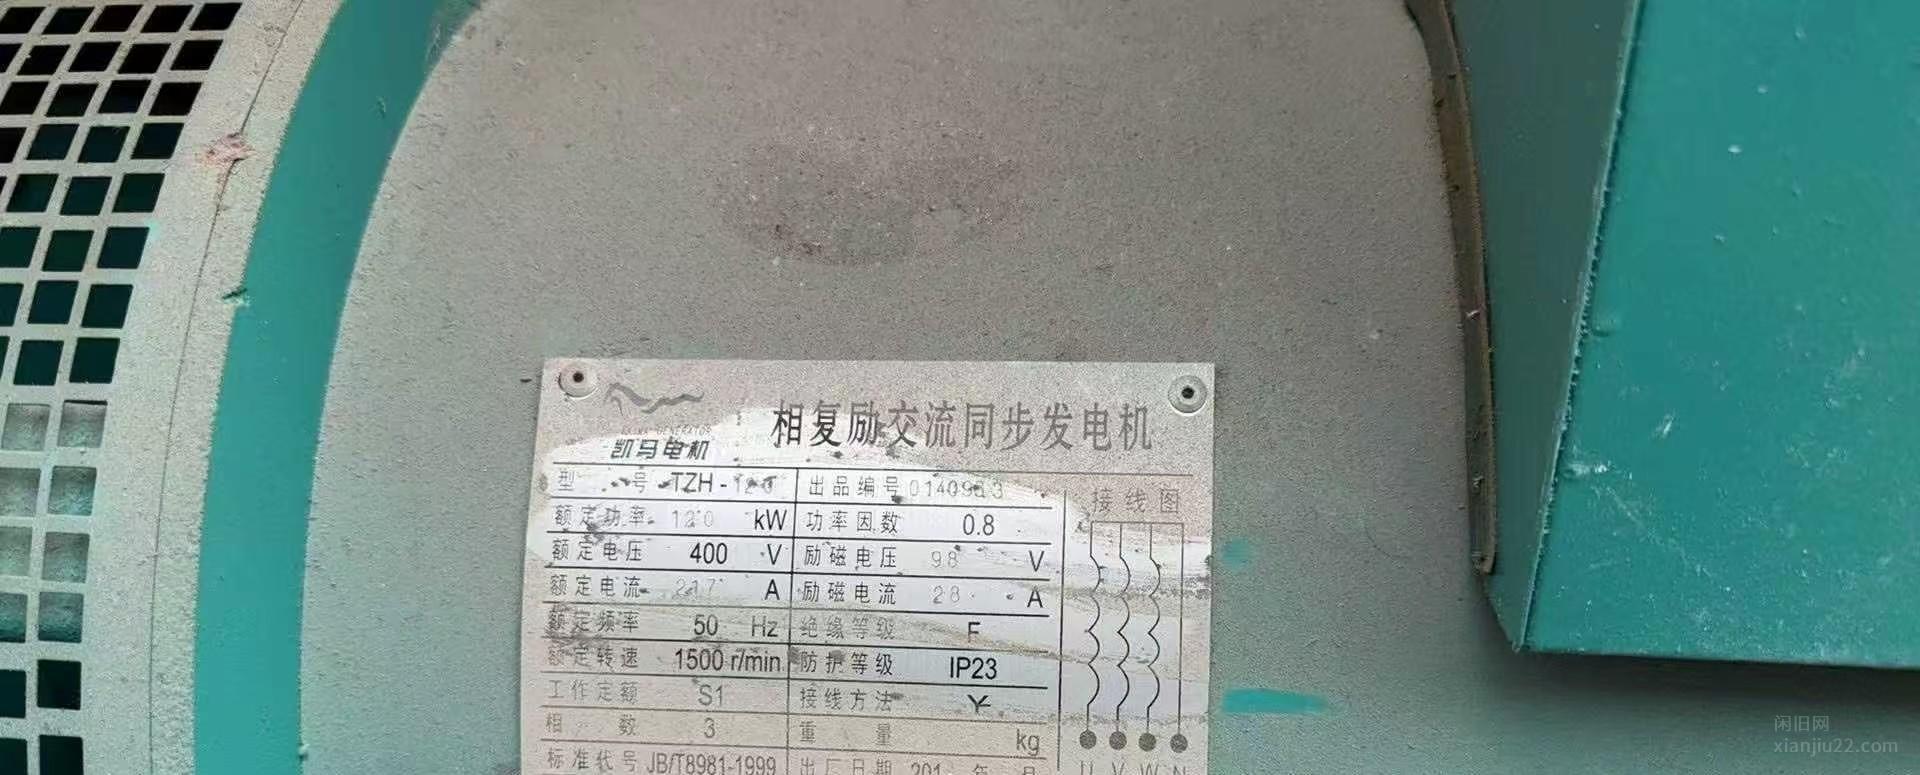 相复励交流同步发电机
凯马电机
型 号 TZH-120 出品编号
接线图
额定功率 120 kW 功率因数 0.8
额定电压 400 V 励磁电压 98 V
额定电流 217 A 励磁电流 28 A
额定频率 50 Hz 绝缘等级 F
额定转速 1500 r/min 防护等级 IP23
工作定额 S1 接线方法 Y
相 数 3 重 量 kg
标准代号 JB/T8981-1999 出厂日期 201 年 月
U V W N
闲旧网
xianjiu22.com